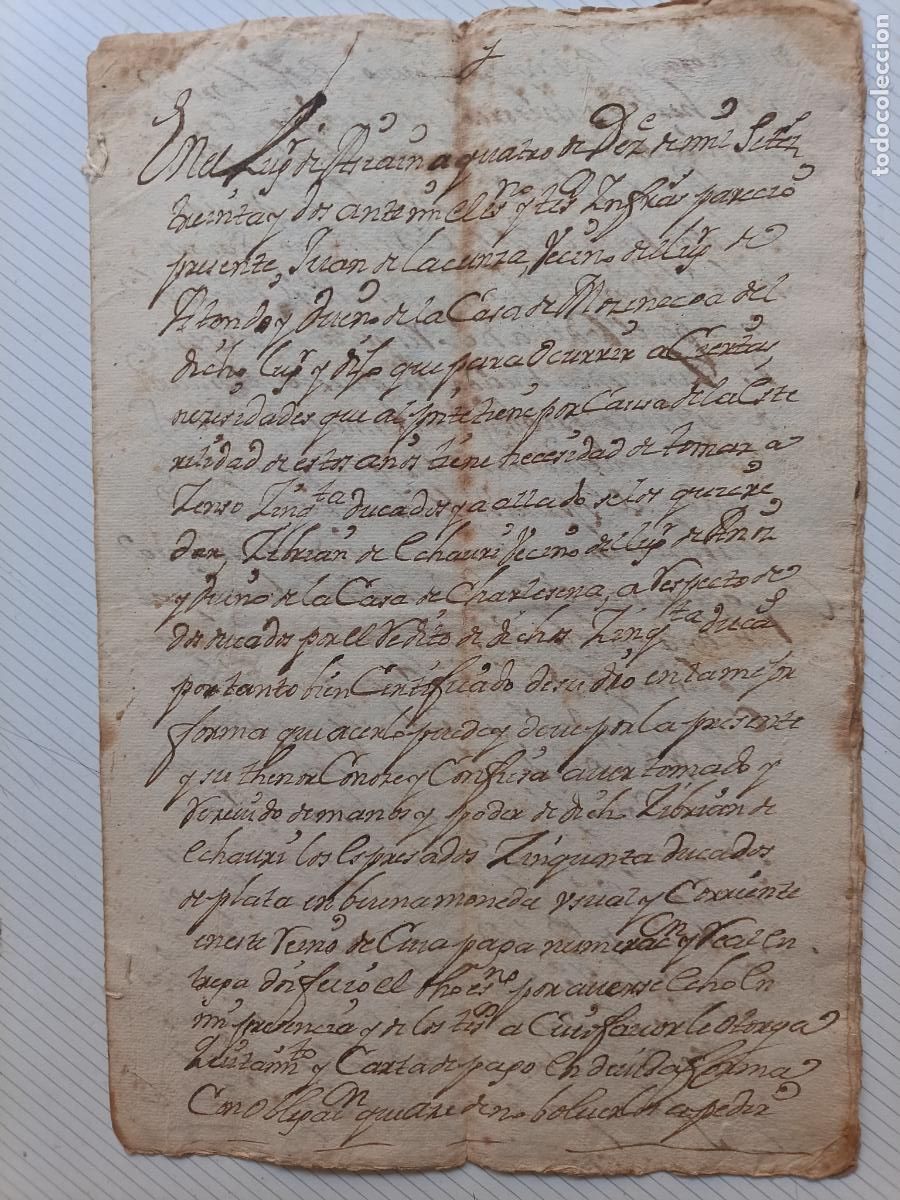 En el Lugr de Araiz a quatro de Dezre de mil Settes
treinta y dos ante mi el esno y tess Infraos parecio
presente, Juan de Lacunza, vecino del lugr de
Atondo y Dueño de la Casa de Morenecoa del
dicho lugr y dijo que para Ocurrir a Ciertas
necesidades que al preste tiene por Causa de la Este
rilidad de estos años tiene necesidad de tomar a
Zenso Zinqta ducados y a allado se los quiere
dar, Zibrian de Echauri Vecino del lugr de Anoz
y Dueño de la Casa de Charlesena, a Respecto de
dos ducados por el Redito de dichos Zinqta ducas
por tanto bien Certificado de su dro en la mejor
forma que acerlo puede y deve por la presente
y su thenor Conoze y Confiesa aver tomado y
Recivido de manos y poder de dicho Zibrian de
echauri los espresados Zinquenta ducados
de plata en buena moneda usual y Corriente
en este Reino de Cuia paga numeracon y Real en
trega doi fee io el dho esno por averse echo en
mi presencia y de los tesos a Cuio favor le Otorga
quitamto y Carta de pago en devida forma
Con Obligacon que ace de no bolverlos a pedir
todocoleccion